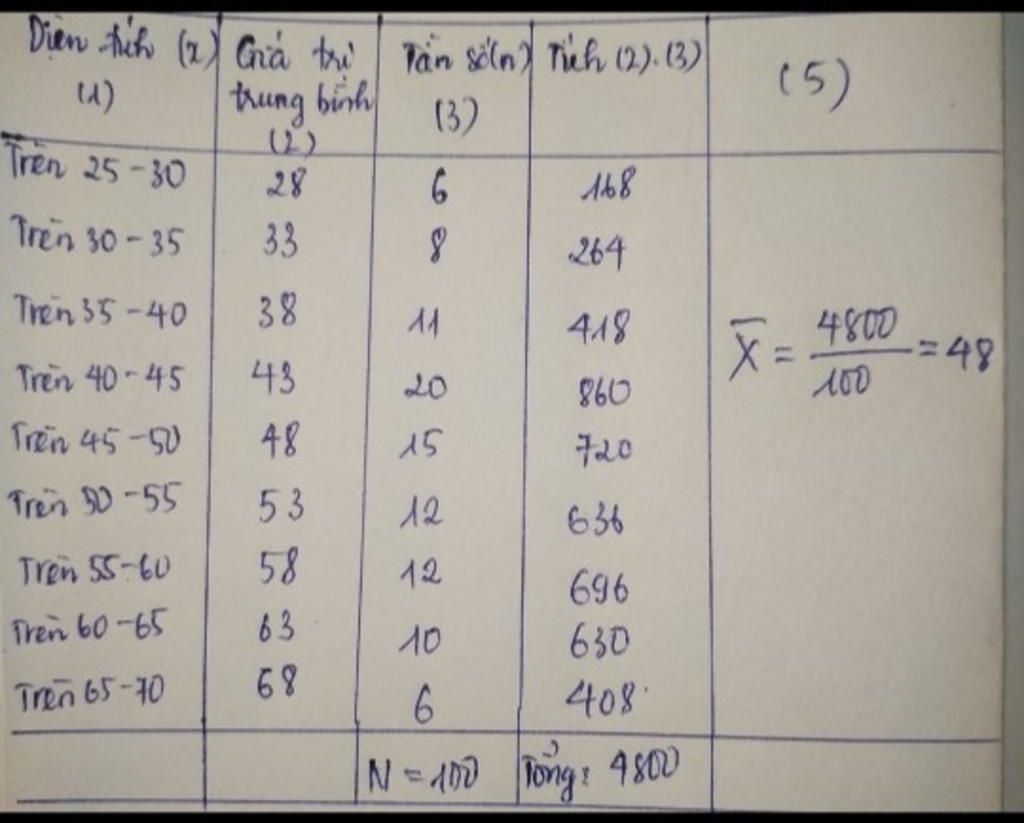 Diện tích (x) Giá trị Tần số(n) Tích (2).(3) (5)
(1) trung bình (3)
(2)
Trên 25-30 28 6 168
Trên 30-35 33 8 264
Trên 35-40 38 11 418
Trên 40-45 43 20 860
Trên 45-50 48 15 720
Trên 50-55 53 12 636
Trên 55-60 58 12 696
Trên 60-65 63 10 630
Trên 65-70 68 6 408
X̄ = 4800/100 = 48
N = 100 Tổng: 4800